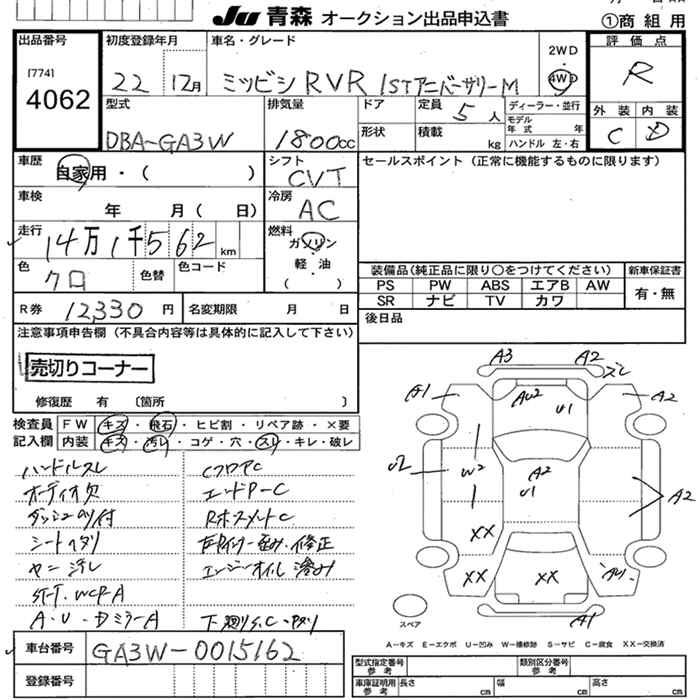 Ju 青森 オークション出品申込書
①商組用
出品番号
[774]
4062
初度登録年月
22 12月
車名・グレード
ミツビシ RVR 1STアニバーサリーM
2WD
4WD
評価点
R
型式
DBA-GA3W
排気量
1800cc
ドア
形状
定員
5人
積載
kg
ディーラー・並行
モデル
年式 年
ハンドル 左・右
外装
内装
C
D
車歴
自家用・( )
シフト
CVT
セールスポイント(正常に機能するものに限ります)
車検
年 月( 日)
冷房
AC
走行
14万1千562km
燃料
ガソリン
・
軽油
( )
色
クロ
色替
色コード
装備品(純正品に限り○をつけてください)
新車保証書
PS PW ABS エアB AW
SR ナビ TV カワ
有・無
R券 12330円
名変期限 月 日
後日品
注意事項申告欄(不具合内容等は具体的に記入して下さい)
売切りコーナー
修復歴 有 [箇所 ]
検査員
記入欄
FW キズ・飛石・ヒビ割・リペア跡・×要
内装 キズ・汚レ・コゲ・穴・スレ・キレ・破レ
ハンドルスレ
オーディオ欠
シートヘタリ
ヤニ汚レ
A・U・DミラーA
CフロアC
エンドP-C
下廻りS.C
A3
A2
ズレ
A1
A2
AW2
U1
U2
W2
A2
U1
A2
XX
XX
XX
A1
スペア
A-キズ E-エクボ U-凹み W-補修跡 S-サビ C-腐食 XX-交換済
車台番号
GA3W-0015162
登録番号
型式指定番号
参考
類別区分番号
参考
車庫証明用
参考
長さ cm
幅 cm
高さ cm